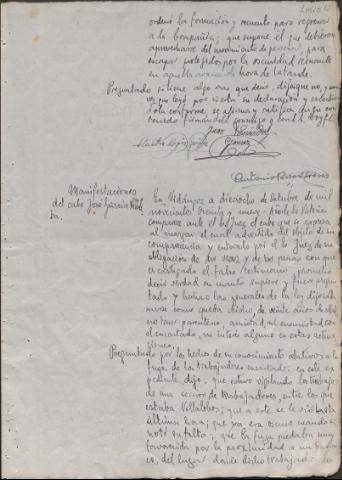 Folio 5
ordenó la formación y recuento para regresar
a la compañía; que supone él que debieron
aprovecharse del movimiento de personal, para
escapar protegidos por la oscuridad reinante
en aquella avanzada hora de la tarde.
Preguntado si tiene algo mas que decir, dijo que no, y una
vez que leyó por si esta su declaración y
conforme se afirma y ratifica en su con
tenido firmándola conmigo y con el
Juan
Antonio
Manifestaciones
del cabo José García
En a dieciocho de Octubre de mil
novecientos treinta y nueve. Año de la Victoria
comparece ante el Sr Juez el cabo que se expresa
al margen el cual advertido del objeto de su
comparecencia y enterado por el Sr Juez de su
obligación de ser veraz y de las penas con que
es castigado el falso testimonio, prometió
decir verdad en cuanto supiere y fuere pregun
tado y hechas las generales de la ley dijo
como queda dicho, de veinte años de edad,
no tener parentesco, amistad, ni enemistad con
el encartado, ni interés alguno en estas actua
ciones.
Preguntado por los hechos de su conocimiento relativos a la
fuga de los trabajadores encartados en este ex
pediente, dijo, que estuvo vigilando los trabajos
de una sección de trabajadores, entre los que
estaba Villalobos; que a este se le vió hasta
última hora; que ya era oscuro cuando se
notó su falta; que la fuga quedaba muy
favorecida por la proximidad a un barran
co, del lugar donde dichos trabajad